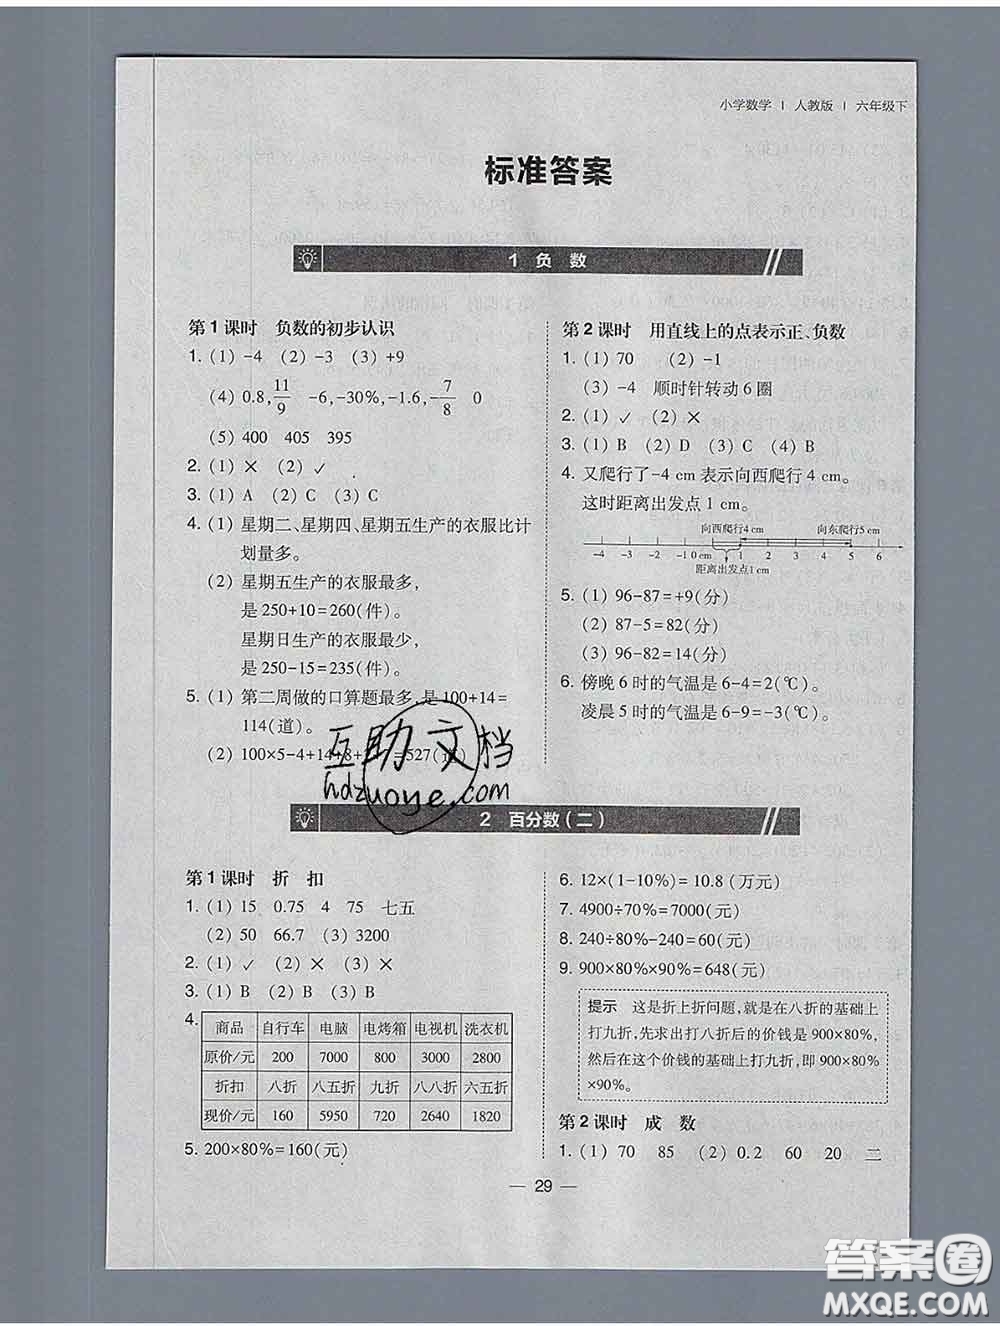 小学数学 | 人教版 | 六年级下
标准答案
1 负 数
第1课时 负数的初步认识
1. (1) -4 (2) -3 (3) +9
(4) 0.8, 11/9 -6, -30%, -1.6, -7/8 0
(5) 400 405 395
2. (1) × (2) ✓
3. (1) A (2) C (3) C
4. (1) 星期二、星期四、星期五生产的衣服比计
划量多。
(2) 星期五生产的衣服最多,
是 250+10=260(件)。
星期日生产的衣服最少,
是 250-15=235(件)。
5. (1) 第二周做的口算题最多,是 100+14=
114(道)。
(2) 100×5-4+14+8+ =527(道)
第2课时 用直线上的点表示正、负数
1. (1) 70 (2) -1
(3) -4 顺时针转动6圈
2. (1) ✓ (2) ×
3. (1) B (2) D (3) C (4) B
4. 又爬行了-4 cm 表示向西爬行 4 cm。
这时距离出发点 1 cm。
向西爬行4 cm 向东爬行5 cm
-4 -3 -2 -1 0 cm 1 2 3 4 5 6
距离出发点1 cm
5. (1) 96-87=+9(分)
(2) 87-5=82(分)
(3) 96-82=14(分)
6. 傍晚 6 时的气温是 6-4=2(℃)。
凌晨 5 时的气温是 6-9=-3(℃)。
互助文档
hdzuoye.com
2 百分数(二)
第1课时 折 扣
1. (1) 15 0.75 4 75 七五
(2) 50 66.7 (3) 3200
2. (1) ✓ (2) × (3) ×
3. (1) B (2) B (3) B
4.
商品 自行车 电脑 电烤箱 电视机 洗衣机
原价/元 200 7000 800 3000 2800
折扣 八折 八五折 九折 八八折 六五折
现价/元 160 5950 720 2640 1820
5. 200×80%=160(元)
6. 12×(1-10%)=10.8 (万元)
7. 4900÷70%=7000(元)
8. 240÷80%-240=60(元)
9. 900×80%×90%=648(元)
提示 这是折上折问题,就是在八折的基础上
打九折,先求出打八折后的价钱是 900×80%,
然后在这个价钱的基础上打九折,即 900×80%
×90%。
第2课时 成 数
1. (1) 70 85 (2) 0.2 60 20 二
— 29 —
答案圈
MXQE.COM